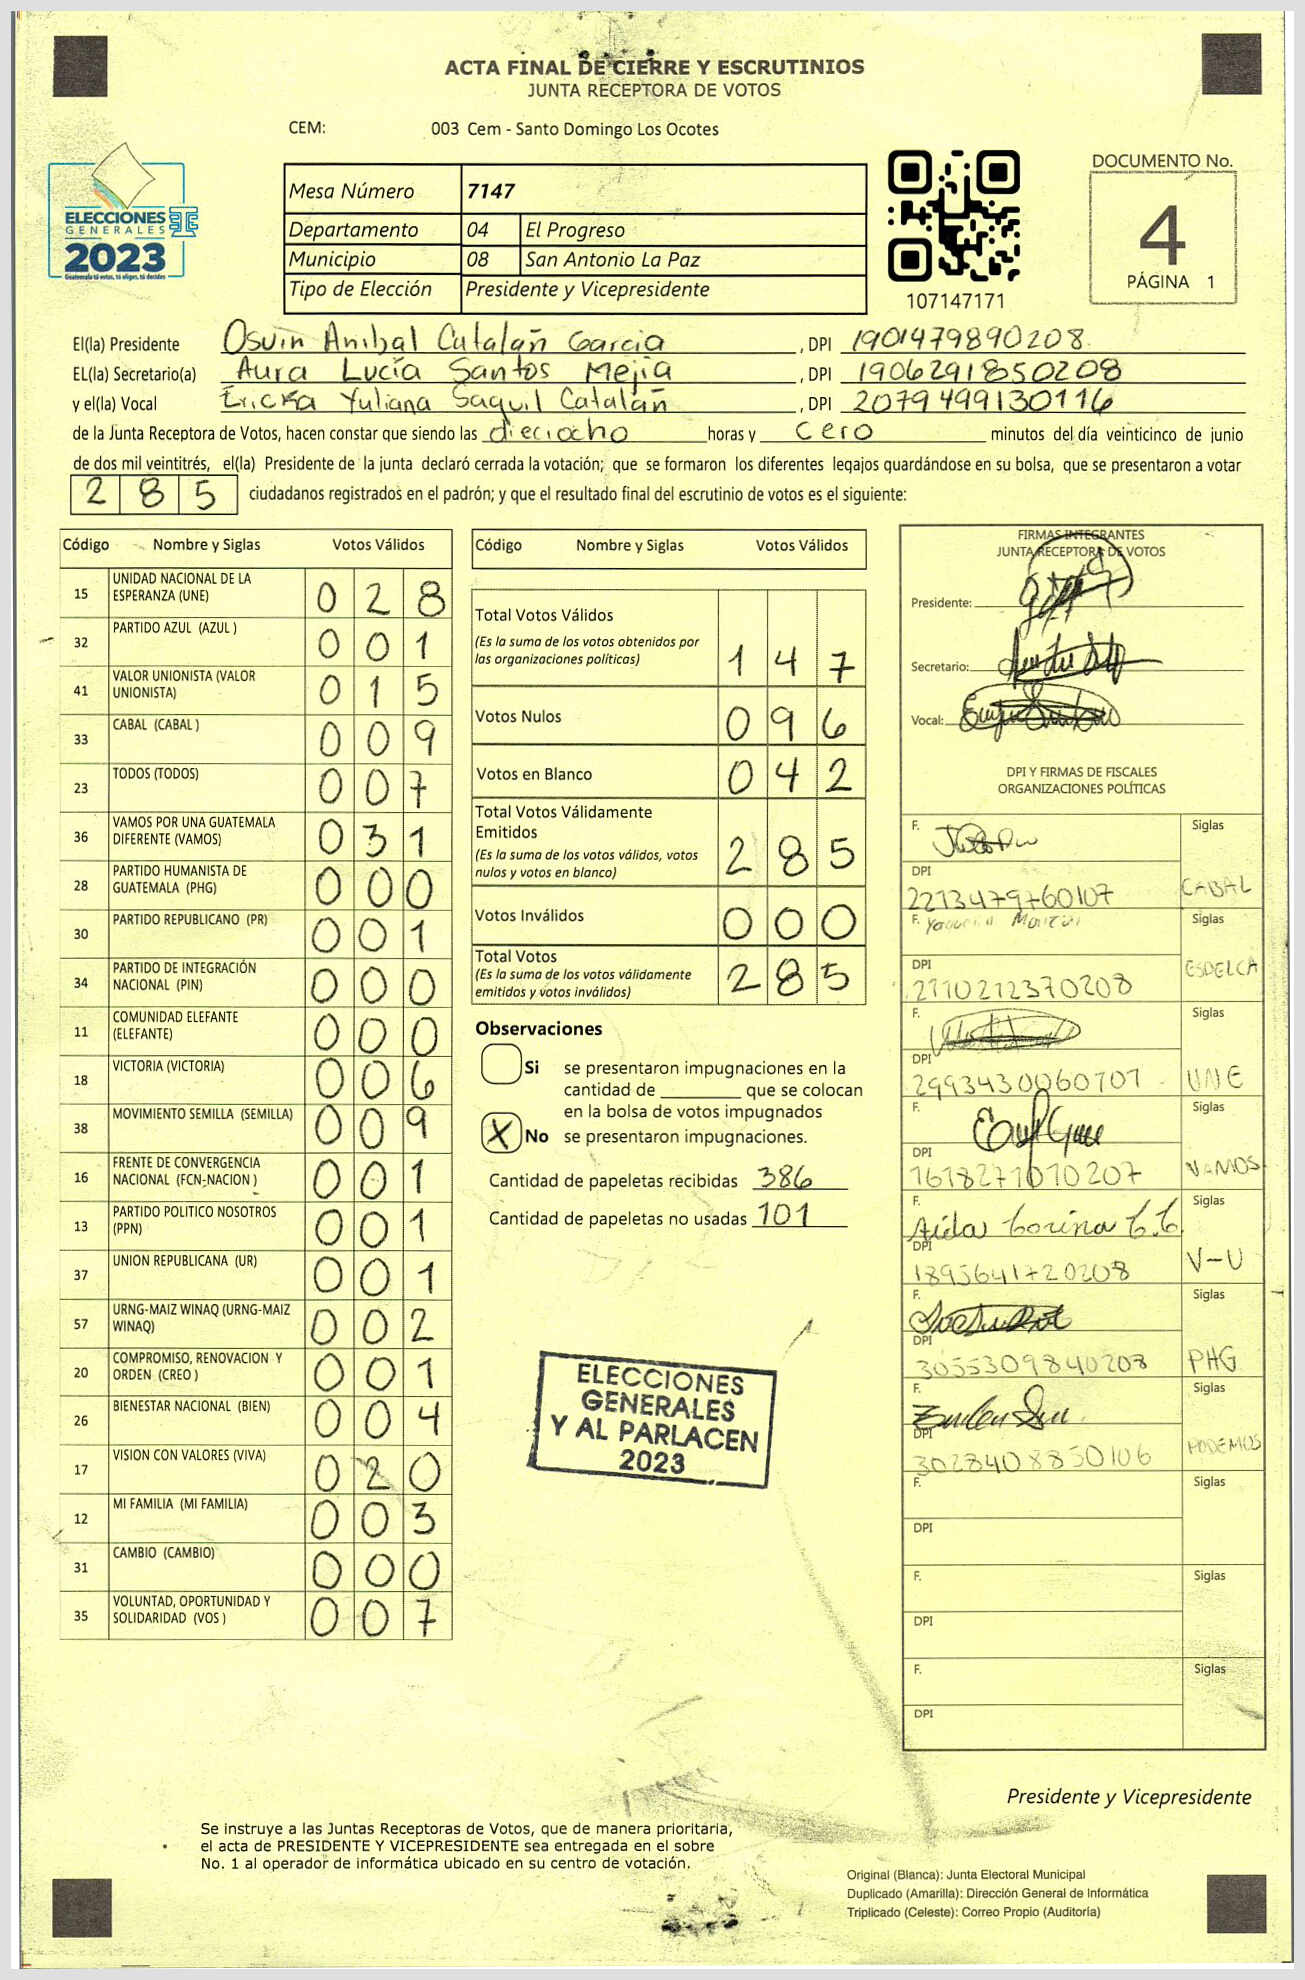 ACTA FINAL DE CIERRE Y ESCRUTINIOS
JUNTA RECEPTORA DE VOTOS
CEM: 003 Cem - Santo Domingo Los Ocotes
ELECCIONES
GENERALES
2023
Guatemala tú votas, tú eliges, tú decides
Mesa Número 7147
Departamento 04 El Progreso
Municipio 08 San Antonio La Paz
Tipo de Elección Presidente y Vicepresidente
107147171
DOCUMENTO No.
4
PÁGINA 1
El(la) Presidente Osvin Anibal Catalañ Garcia, DPI 1901479890208
EL(la) Secretario(a) Aura Lucía Santos Mejia, DPI 1906291850208
y el(la) Vocal Ericka Yuliana Saquil Catalañ, DPI 2079499130116
de la Junta Receptora de Votos, hacen constar que siendo las dieciocho horas y cero minutos del día veinticinco de junio
de dos mil veintitrés, el(la) Presidente de la junta declaró cerrada la votación; que se formaron los diferentes legajos quardándose en su bolsa, que se presentaron a votar
285 ciudadanos registrados en el padrón; y que el resultado final del escrutinio de votos es el siguiente:
Código Nombre y Siglas Votos Válidos
15 UNIDAD NACIONAL DE LA ESPERANZA (UNE) 028
32 PARTIDO AZUL (AZUL ) 001
41 VALOR UNIONISTA (VALOR UNIONISTA) 015
33 CABAL (CABAL ) 009
23 TODOS (TODOS) 007
36 VAMOS POR UNA GUATEMALA DIFERENTE (VAMOS) 031
28 PARTIDO HUMANISTA DE GUATEMALA (PHG) 000
30 PARTIDO REPUBLICANO (PR) 001
34 PARTIDO DE INTEGRACIÓN NACIONAL (PIN) 000
11 COMUNIDAD ELEFANTE (ELEFANTE) 000
18 VICTORIA (VICTORIA) 006
38 MOVIMIENTO SEMILLA (SEMILLA) 009
16 FRENTE DE CONVERGENCIA NACIONAL (FCN-NACION ) 001
13 PARTIDO POLITICO NOSOTROS (PPN) 001
37 UNION REPUBLICANA (UR) 001
57 URNG-MAIZ WINAQ (URNG-MAIZ WINAQ) 002
20 COMPROMISO, RENOVACION Y ORDEN (CREO ) 001
26 BIENESTAR NACIONAL (BIEN) 004
17 VISION CON VALORES (VIVA) 020
12 MI FAMILIA (MI FAMILIA) 003
31 CAMBIO (CAMBIO) 000
35 VOLUNTAD, OPORTUNIDAD Y SOLIDARIDAD (VOS ) 007
Código Nombre y Siglas Votos Válidos
Total Votos Válidos
(Es la suma de los votos obtenidos por las organizaciones políticas) 147
Votos Nulos 096
Votos en Blanco 042
Total Votos Válidamente Emitidos
(Es la suma de los votos válidos, votos nulos y votos en blanco) 285
Votos Inválidos 000
Total Votos
(Es la suma de los votos válidamente emitidos y votos inválidos) 285
Observaciones
Si se presentaron impugnaciones en la
cantidad de ________ que se colocan
en la bolsa de votos impugnados
X No se presentaron impugnaciones.
Cantidad de papeletas recibidas 386
Cantidad de papeletas no usadas 101
ELECCIONES
GENERALES
Y AL PARLACEN
2023
FIRMAS INTEGRANTES
JUNTA RECEPTORA DE VOTOS
Presidente:
Secretario:
Vocal:
DPI Y FIRMAS DE FISCALES
ORGANIZACIONES POLÍTICAS
F. Siglas
DPI 2273479760107 CABAL
F. Siglas
DPI 2710212370208 ESDELCA
F. Siglas
DPI 2993430060701 UNE
F. Siglas
DPI 1618271010207 VAMOS
F. Aida Corina C.C. Siglas
DPI 1895641720208 V-U
F. Siglas
DPI 3055309840208 PHG
F. Siglas
DPI 3028408850106 PODEMOS
F. Siglas
DPI
F. Siglas
DPI
F. Siglas
DPI
Presidente y Vicepresidente
Se instruye a las Juntas Receptoras de Votos, que de manera prioritaria,
el acta de PRESIDENTE Y VICEPRESIDENTE sea entregada en el sobre
No. 1 al operador de informática ubicado en su centro de votación.
Original (Blanca): Junta Electoral Municipal
Duplicado (Amarilla): Dirección General de Informática
Triplicado (Celeste): Correo Propio (Auditoría)